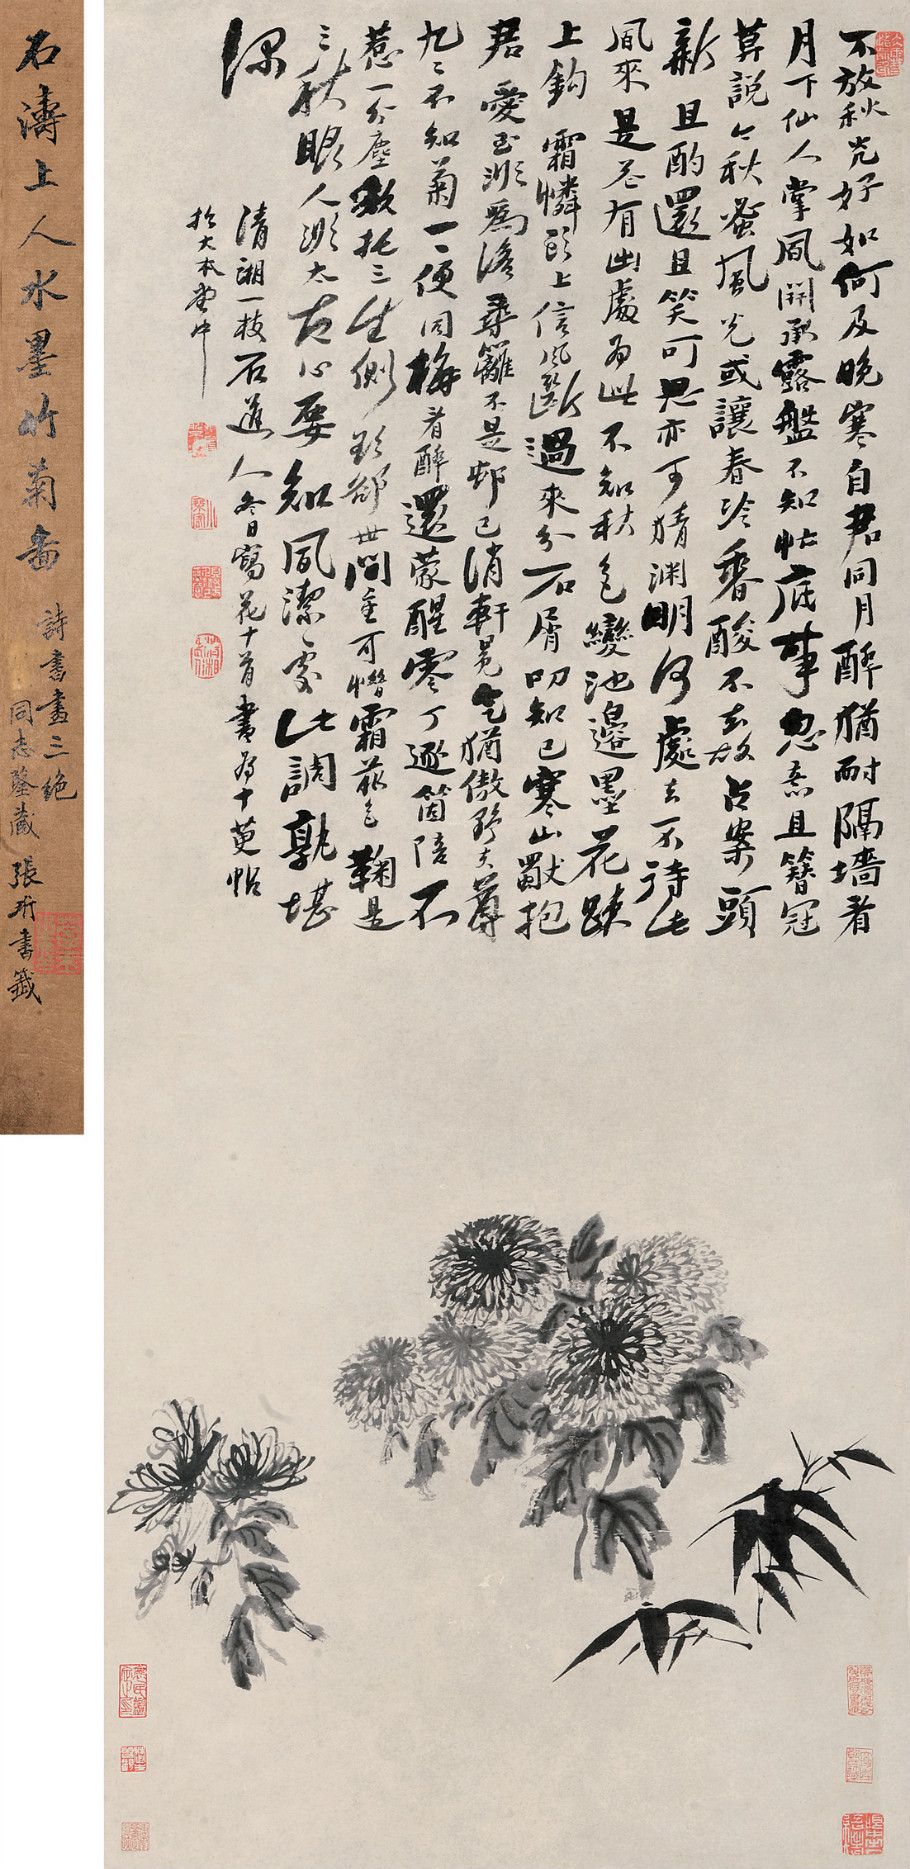 不放秋光好如何及晚寒自君同月醉猶耐隔墻看
月下仙人掌風開承露盤不知忙底事忽憙且簪冠
莫說今秋蚤風光或讓春冷香酸不去故占案頭
新且酌還且笑可思亦可猜淵明何處去不待此
風來是花有出處為此不知秋色變池邊墨花跡
上鈎霜憐頭上信風斷過來分石屑叩知己寒山獻抱
君愛玉顏為澹尋籬不是邨已消軒冕气猶傲野夫尊
九九不知菊一一便同梅看醉還蒙醒零丁逐箇陪不
惹一分塵敢托三生側影鄰世間奎可惜霜花色鞠是
三秋眼人澹太古心要知風潔處此調孰堪
深
清湘一枝石道人冬日寫花十首書為十萸帖
於大本堂中
石濤上人水墨竹菊畵
詩書畫三絕
同志鑒藏 張珩書籤